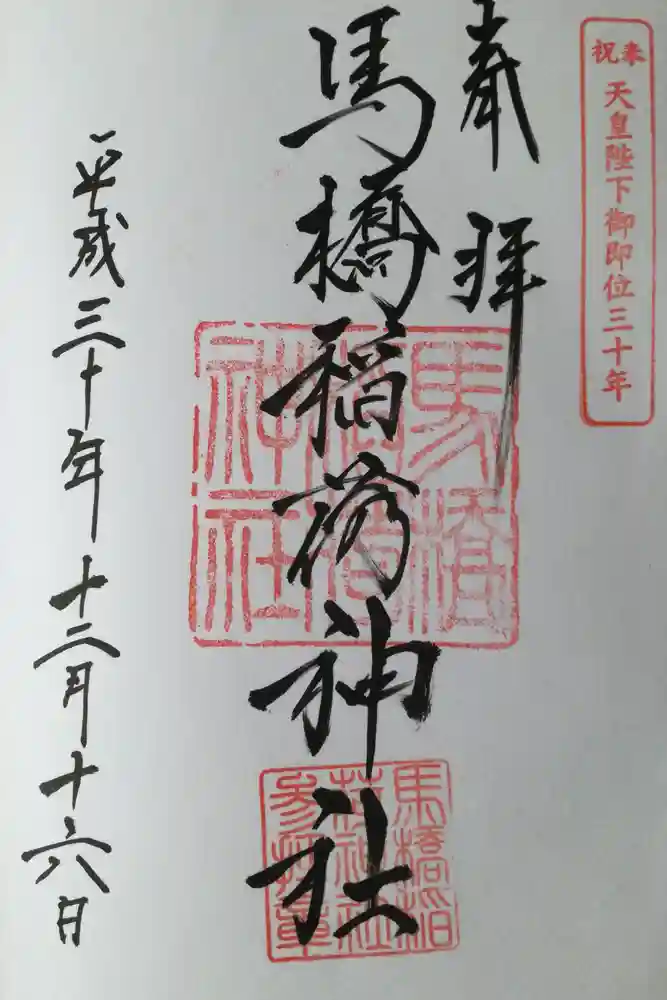 奉祝
天皇陛下御即位三十年
奉拝
馬橋稲荷神社
平成三十年十二月十六日
馬橋
稲荷
神社
馬橋稲
荷神社
参拝章